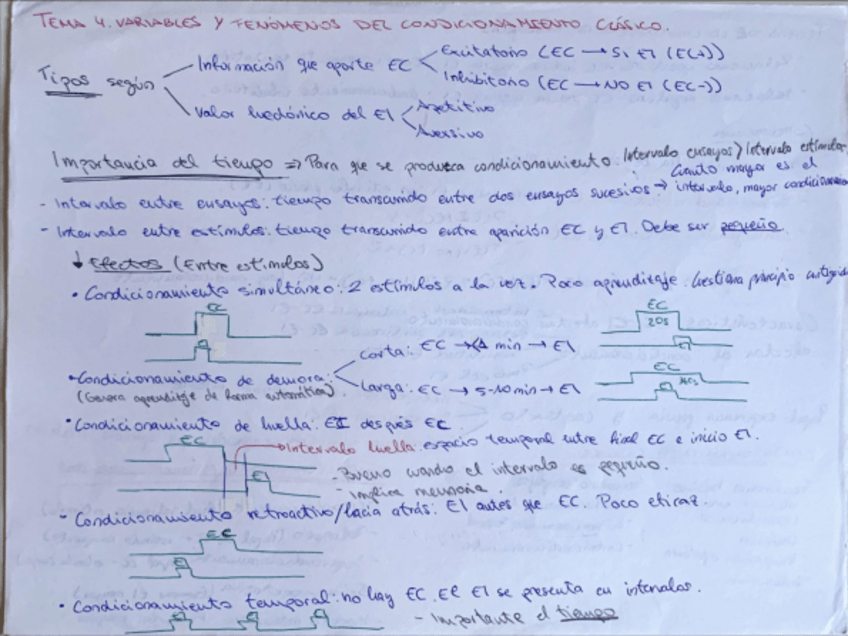 TEMA 4. VARIABLES Y FENÓMENOS DEL CONDICIONAMIENTO CLÁSICO.
Tipos según
Información que aporte EC
Excitatorio (EC → Sí EI (EC+))
Inhibitorio (EC → NO EI (EC-))
Valor hedónico del EI
Apetitivo
Aversivo
Importancia del tiempo => Para que se produzca condicionamiento: Intervalo ensayos > Intervalo estímulos
- Intervalo entre ensayos: tiempo transcurrido entre dos ensayos sucesivos → Cuanto mayor es el intervalo, mayor
- Intervalo entre estímulos: tiempo transcurrido entre aparición EC y EI. Debe ser pequeño.
↓ Efectos (Entre estímulos)
• Condicionamiento simultáneo: 2 estímulos a la vez. Poco aprendizaje. Cuestiona principio
EC
EC
20s
• Condicionamiento de demora:
(Genera aprendizaje de forma automática)
corta: EC → <1 min → EI
Larga: EC → 5-10 min → EI
EC
• Condicionamiento de huella: EI después EC.
EC
→ Intervalo huella: espacio temporal entre final EC e inicio EI.
EI
- Bueno cuando el intervalo es pequeño.
- Implica memoria.
- Condicionamiento retroactivo/hacia atrás: EI antes que EC. Poco eficaz
EC
EI
• Condicionamiento temporal: no hay EC. El EI se presenta en intervalos.
- Importante el tiempo
EI EI EI